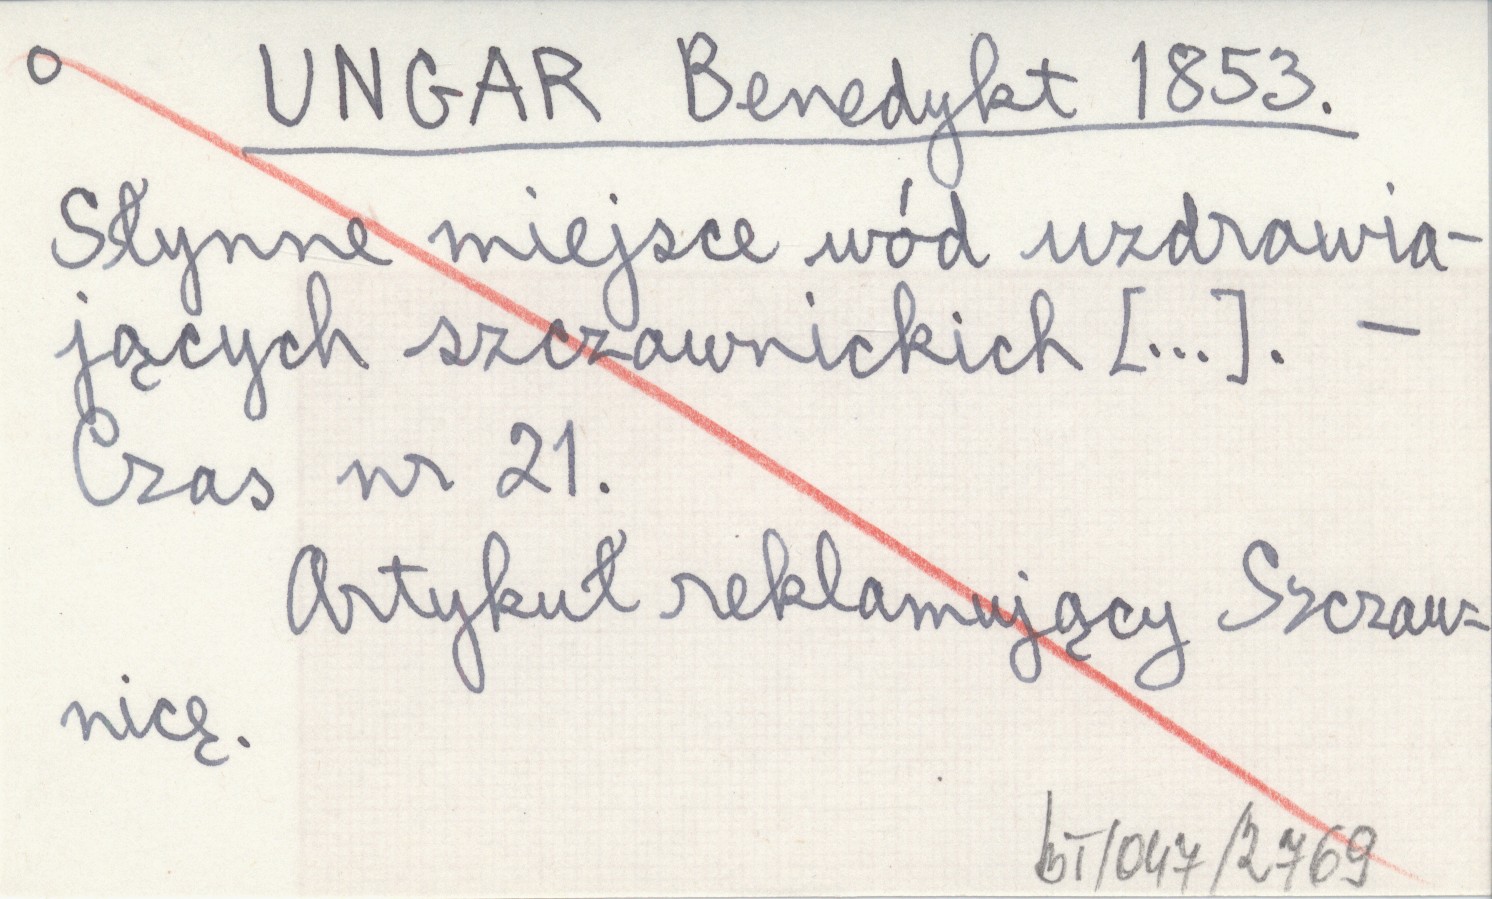 o UNGAR Benedykt 1853.
Słynne miejsce wód uzdrawia-
jących szczawnickich [...]. —
Czas nr 21.
Artykuł reklamujący Szczaw=
nicę.
bT/047/2769